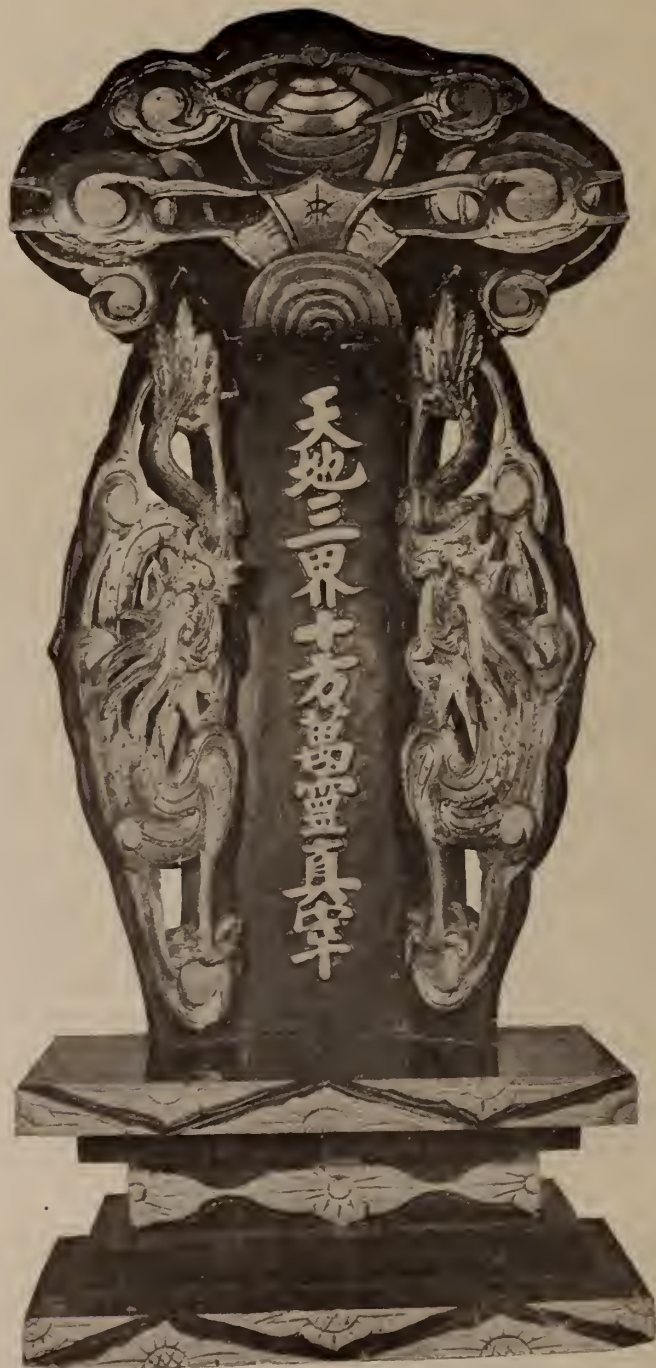 天地三界十方萬靈真宰